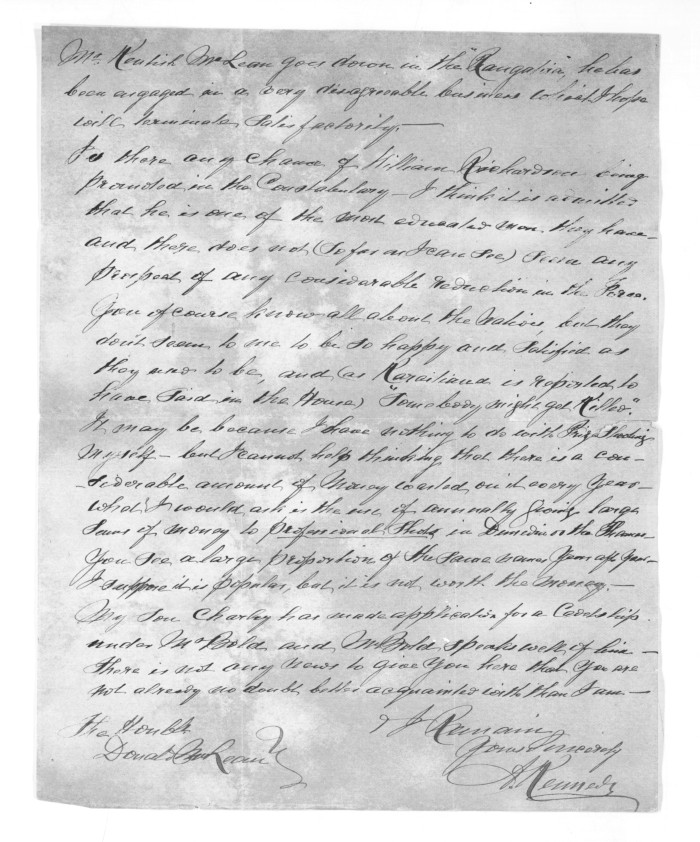 Mr. Kentish McLean goes down in the "Rangatira", he has
been engaged in a very disagreeable business which I hope
will terminate satisfactorily. —
Is there any chance of William Richardson being
promoted in the Constabulary — I think it is admitted
that he is one of the most educated men they have —
and there does not (so far as I can see) seem any
prospect of any considerable reduction in the Force.
You of course know all about the Natives, but they
don't seem to me to be so happy and satisfied as
they used to be, and (as Karaitiana is reported to
have said in the House) "Somebody might get Killed".
It may be because I have nothing to do with Prize
myself — but I cannot help thinking that there is a con-
-siderable amount of money wasted on it every year —
what I would ask is the use of annually giving large
sums of money to professional in Dunedin or the Thames
You see a large proportion of the same names year after year —
I suppose it is popular, but it is not worth the money. —
My son Charley has made application for a Cadetship
under Mr Bold and Mr Bold speaks well of him —
There is not any news to give you here that you are
not already no doubt better acquainted with than I am —
I Remain
Yours sincerely
A. Kennedy
The Honble
Donald McLean